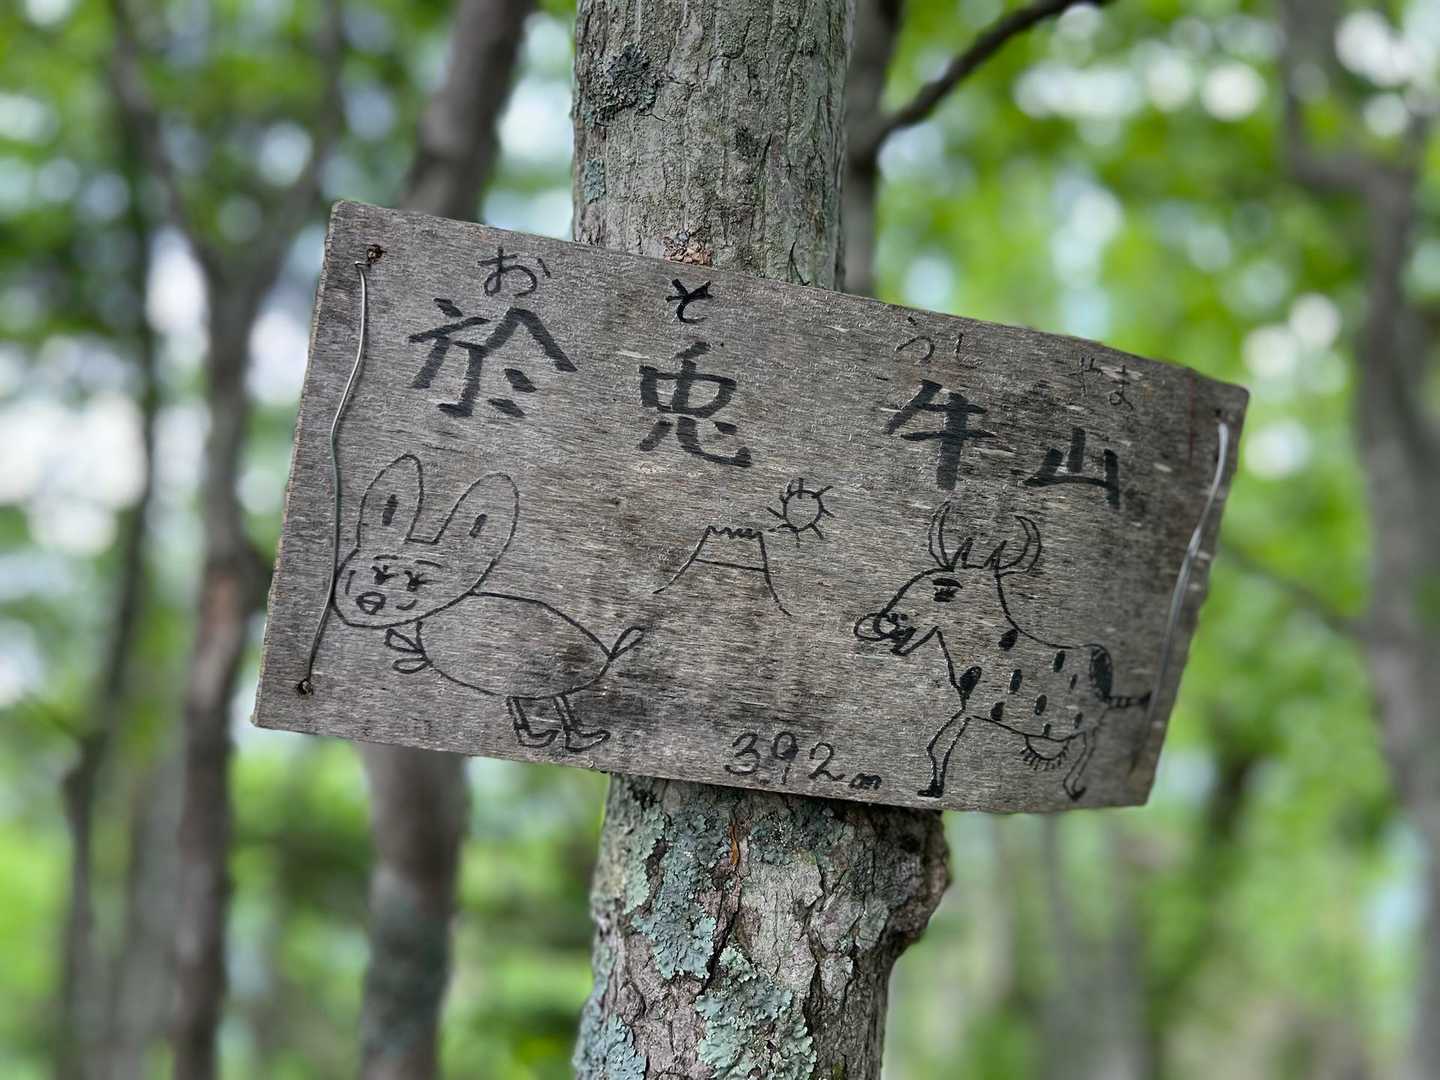 お と うし やま
於 兎 牛 山
392m